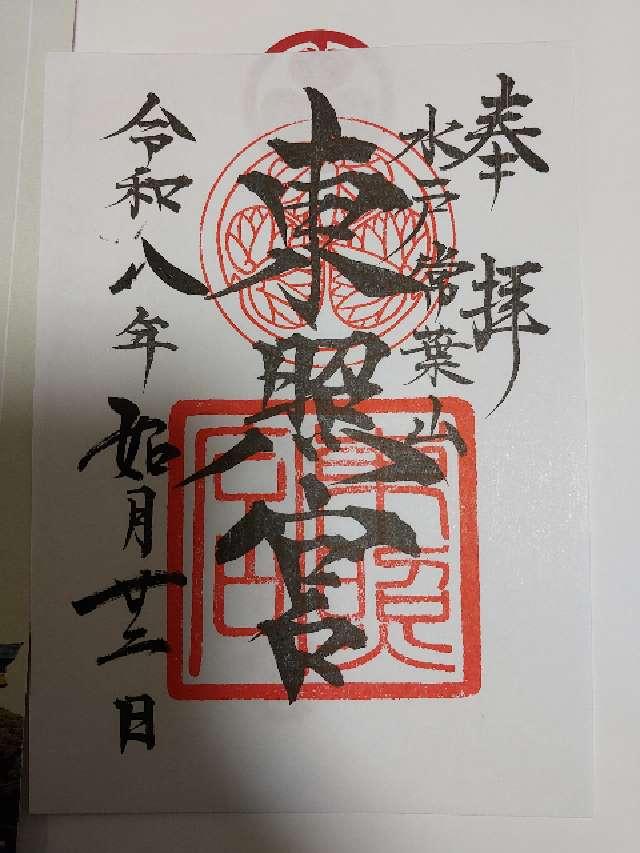 奉拝
水戸常葉山
東照宮
令和八年如月廿二日